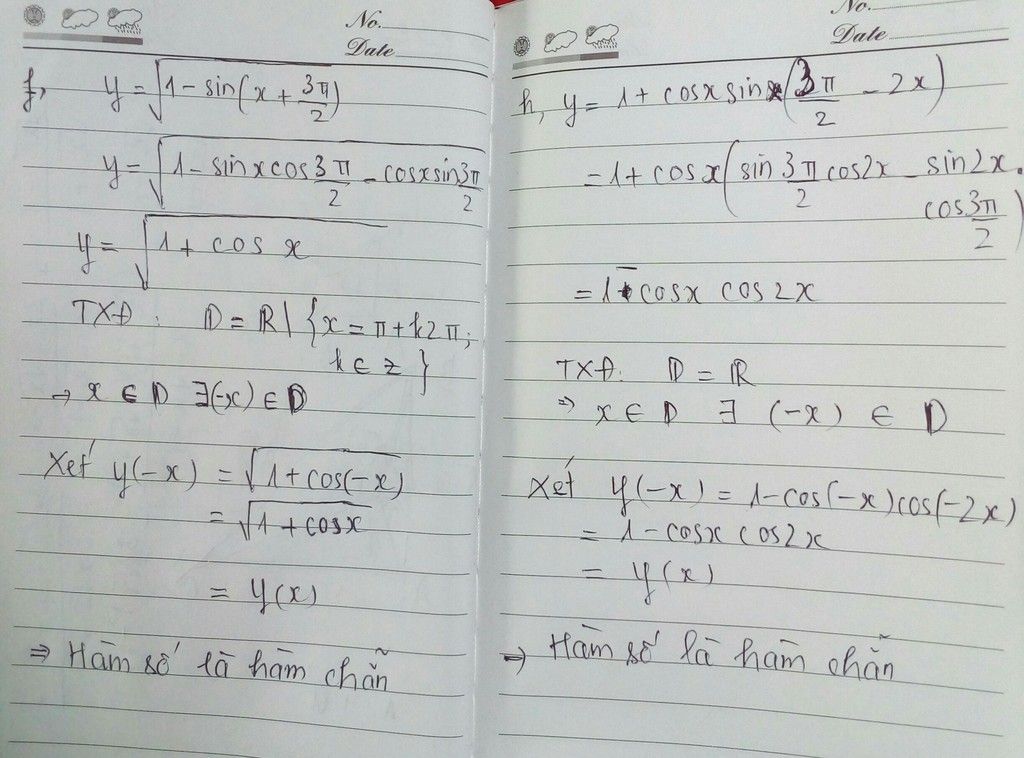 No.
Date
f, y = √(1 - sin(x + 3π/2))
y = √(1 - sinx cos 3π/2 - cosx sin 3π/2)
y = √(1 + cos x)
TXĐ: D = R \ {x = π + k2π;
k ∈ z}
→ x ∈ D ∃(-x) ∈ D
Xét y(-x) = √(1 + cos(-x))
= √(1 + cosx)
= y(x)
⇒ Hàm số là hàm chẵn
No.
Date
h, y = 1 + cosx sin(3π/2 - 2x)
= 1 + cosx(sin 3π/2 cos2x - sin2x.
cos 3π/2)
= 1 - cosx cos2x
TXĐ: D = R
⇒ x ∈ D ∃ (-x) ∈ D
Xét y(-x) = 1 - cos(-x)cos(-2x)
= 1 - cosx cos2x
= y(x)
→ Hàm số là hàm chẵn